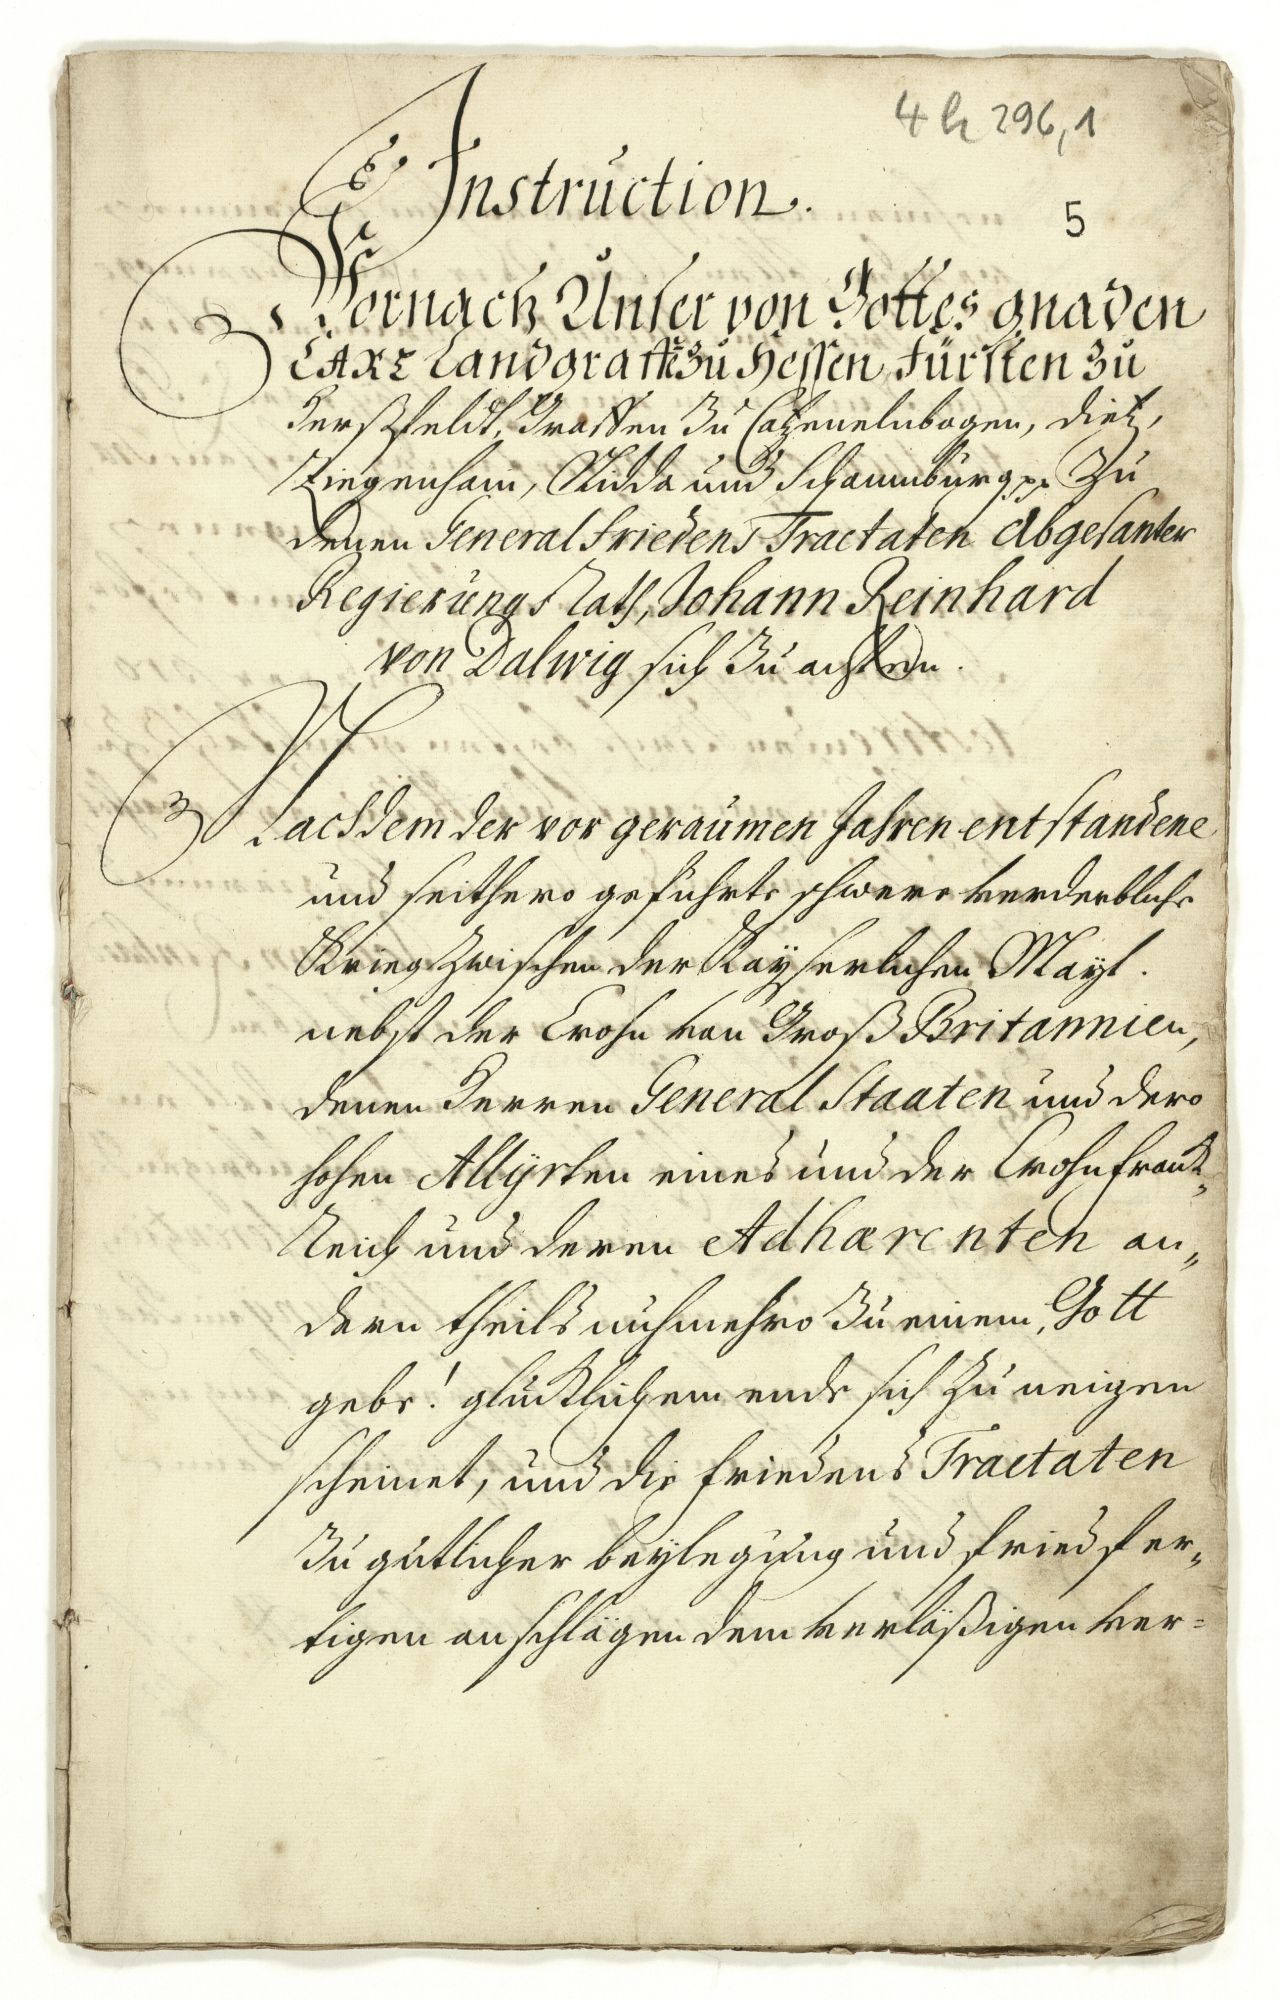 4 h 296,1
Instruction.
5
Wornach Unser von Gottes gnaden
CARL Landgraffen zu Hessen, Fürsten zu
Herßfeldt, Graffen zu Catzenelnbogen, Dietz,
Ziegenhain, Nidda und Schaumburg pp. Zu
denen General Friedens Tractaten Abgesanter
Regierungs Rath, Johann Reinhard
von Dalwig sich zu achten.
Nachdem der vor geraumen Jahren entstandene
und seithero geführte schwere verderbliche
Krieg zwischen der Kayserlichen Mayt.
nebst der Crohn von Groß Britannien,
denen Herren General Staaten und dero
hohen Allyrten eines und der Crohn Franck„
Reich und deren Adhærenten an„
dern theils nuhmehro zu einem, Gott
gebe! glücklichem ende sich zu neigen
scheinet, und die Friedens Tractaten
zu gütlicher beylegung und friedfer„
tigen anschlägen dem verläßigen ver=